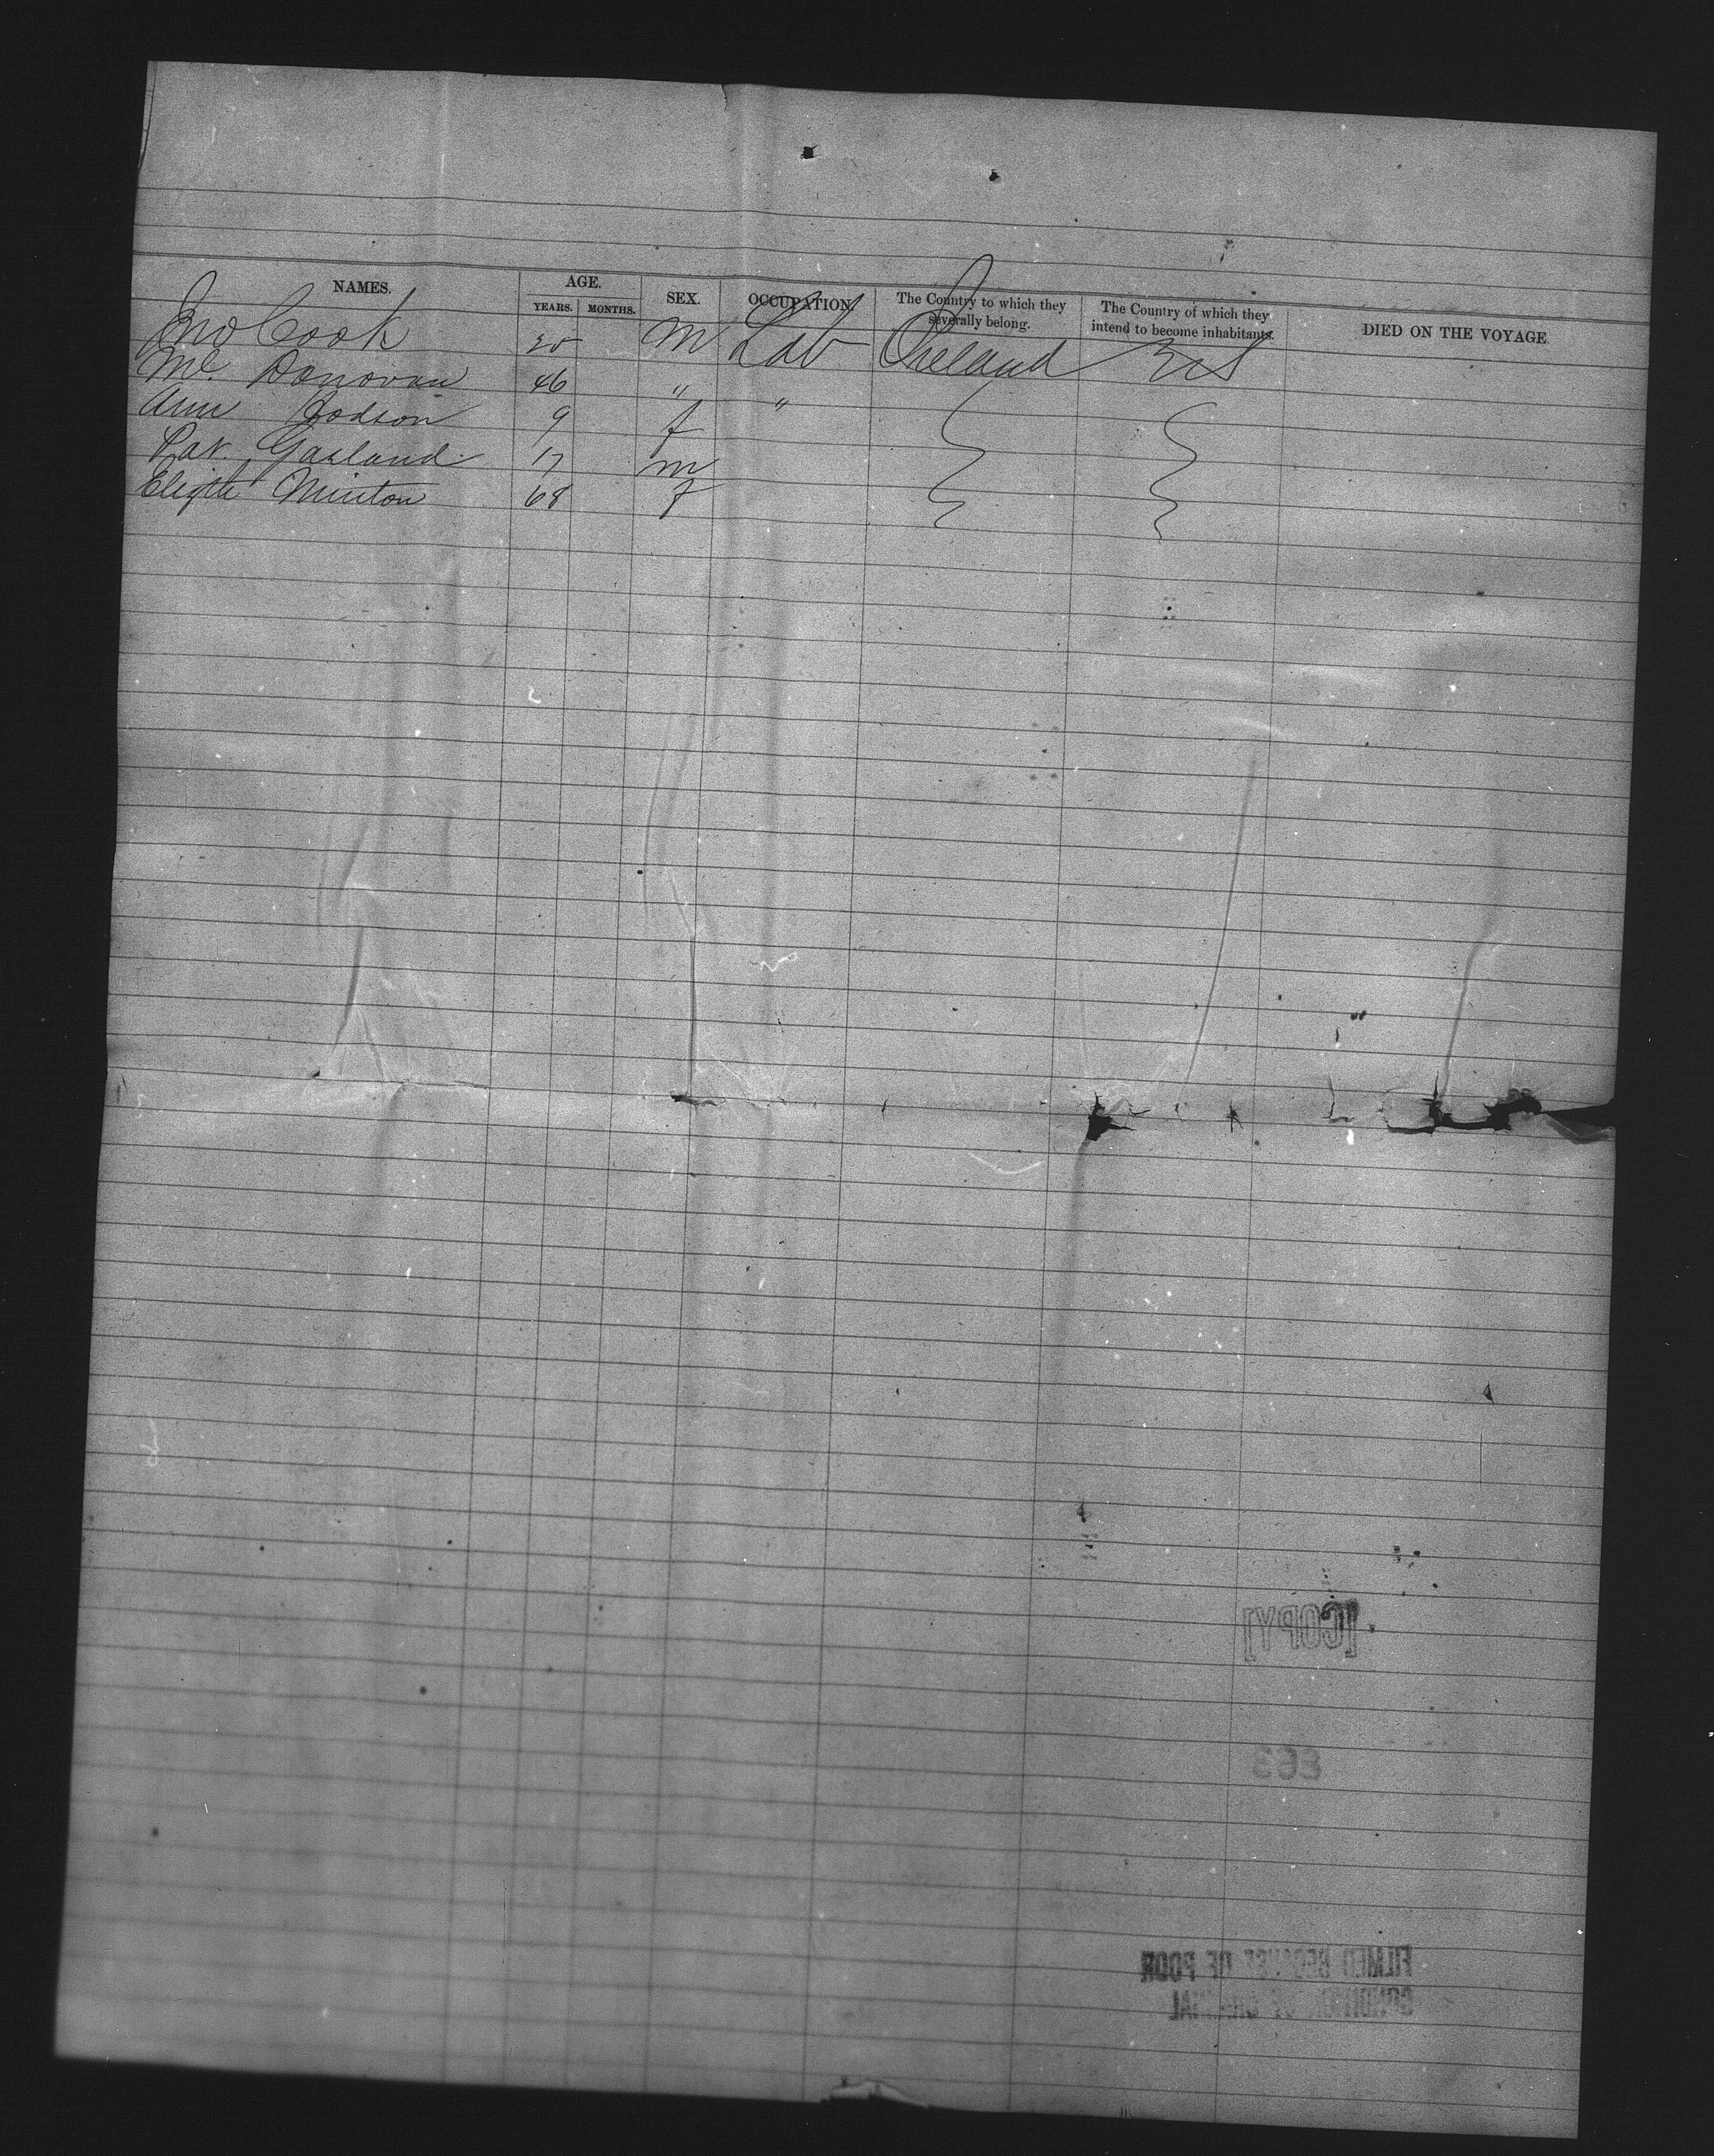 NAMES. AGE. SEX. OCCUPATION. The Country to which they severally belong. The Country of which they intend to become inhabitants. DIED ON THE VOYAGE.
YEARS. MONTHS.
Jno Cook 20 M Lab Ireland U S
Ml. Donovan 46 " "
Ann Hodson 9 f
Pat. Garland 17 m
Elizth Minton 68 f
[COPY]
863
FILMED BECAUSE OF POOR
CONDITION OF ORIGINAL